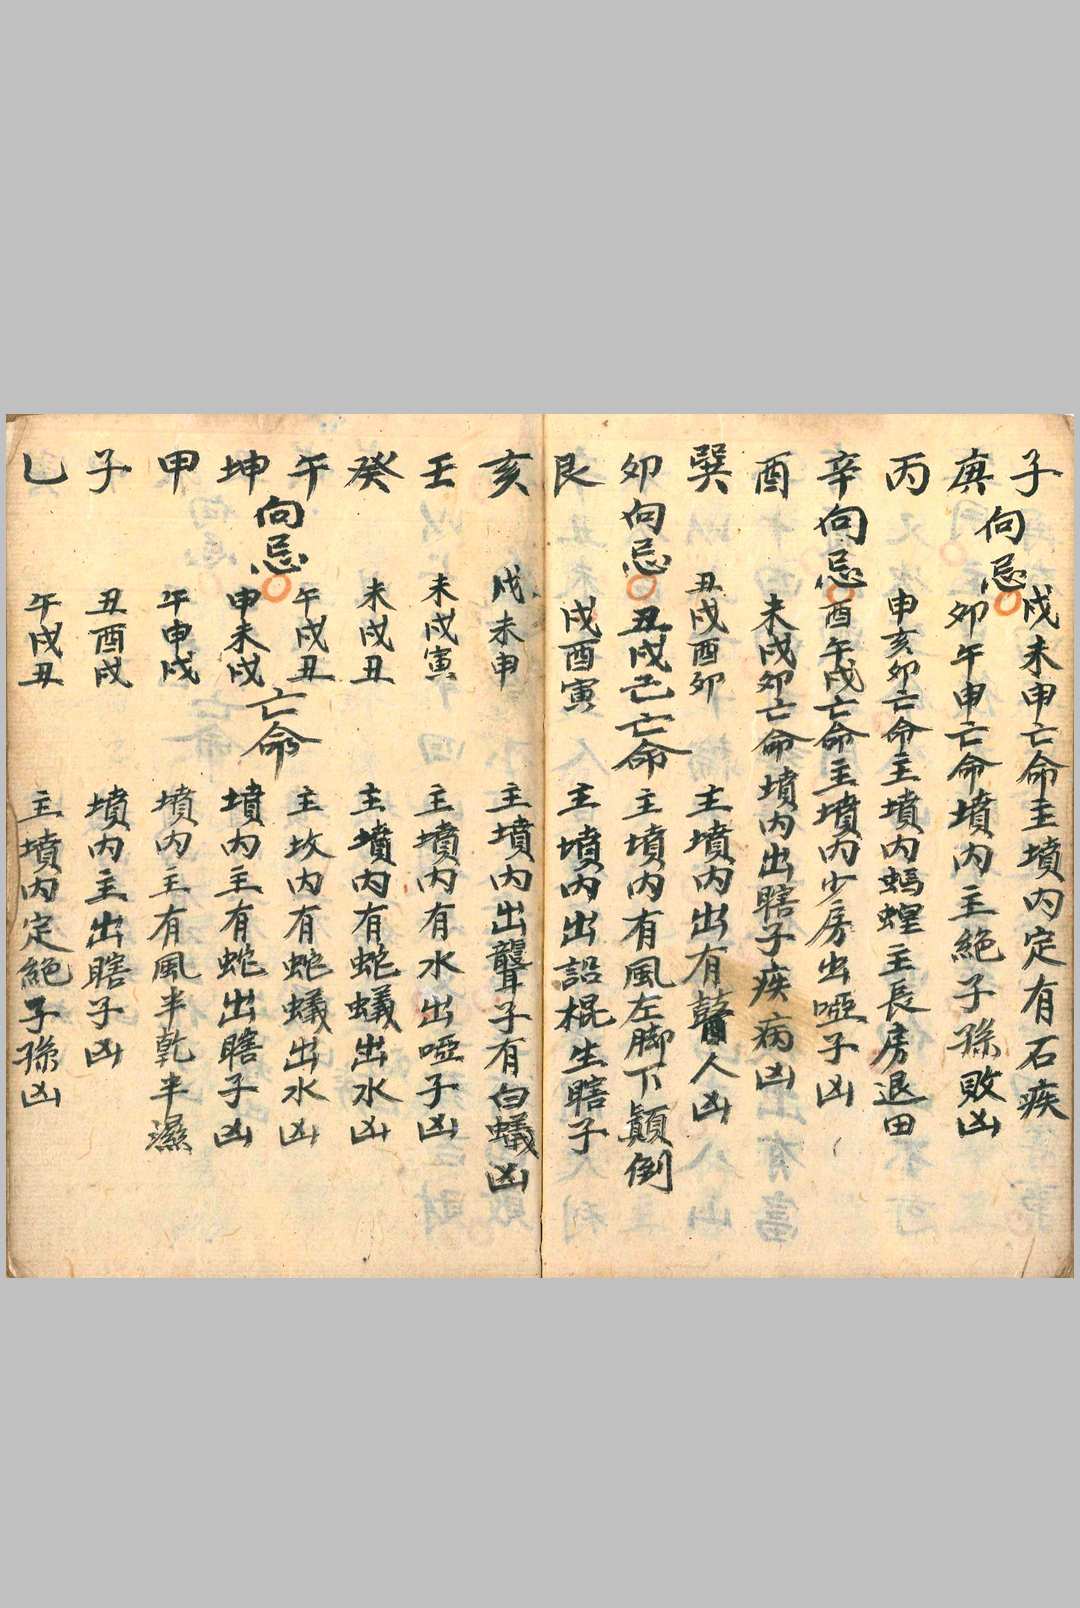 子向忌戌未申亡命主墳内定有石疾
庚 卯午申亡命墳内主絕子孫敗凶
丙 申亥卯亡命主墳内螞蝗主長房退田
辛向忌酉午戌亡命主墳内少房出啞子凶
酉 未戌卯亡命墳内出瞎子疾病凶
巽 丑戌酉卯 主墳内出有瞽人凶
卯向忌丑戌己亡命主墳内有風左脚下顛倒
艮 戌酉寅 主墳内出詔棍生瞎子
亥 戊未申 主墳内出聾子有白蟻凶
壬 未戌寅 主墳内有水出啞子凶
癸 未戌丑 主墳内有蛇蟻出水凶
午 午戌丑 主坟内有蛇蟻出水凶
向忌 亡命
坤 申未戌 墳内主有蛇出瞎子凶
甲 午申戌 墳内主有風半乾半濕
子 丑酉戌 墳内主出瞎子凶
乚 午戌丑 主墳内定絕子孫凶